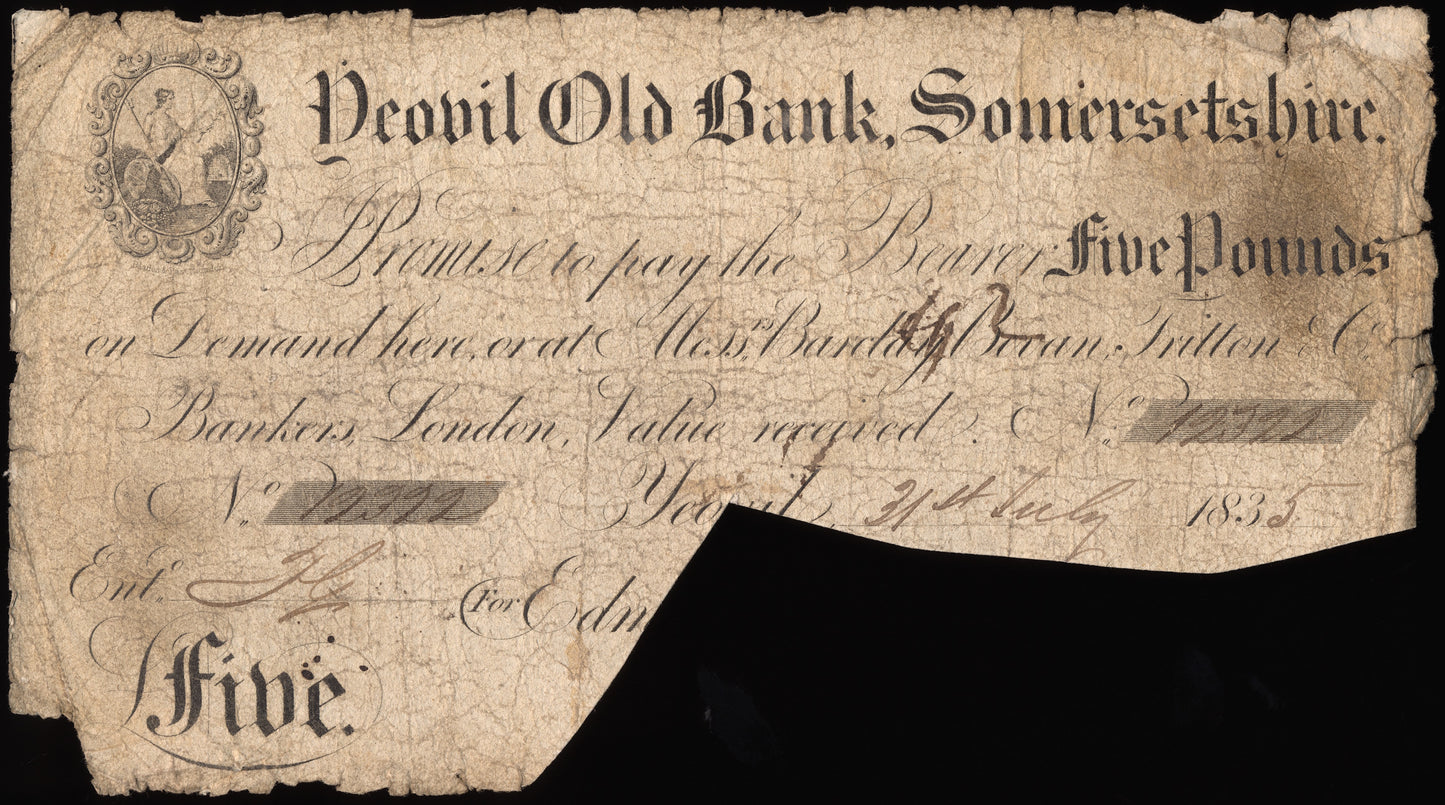 Yeovil Old Bank, Somersetshire.
I Promise to pay the Bearer Five Pounds
on Demand here, or at Mess.rs Barclay, Bevan, Tritton & C.o
Bankers, London, Value received. N.o 12322
N.o 12322 Yeovil, 31st July 1835
Ent.d
For Edm
Five.